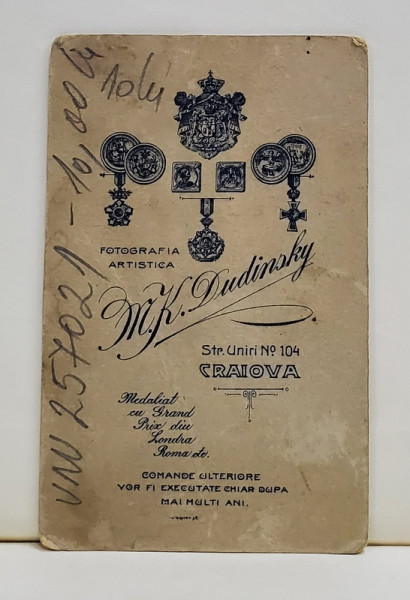 10 lei
FOTOGRAFIA
ARTISTICA
M.K. Dudinsky
Str. Uniri Nº 104
CRAIOVA
Medaliat
cu Grand
Prix din
Londra
Roma etc.
COMANDE ULTERIORE
VOR FI EXECUTATE CHIAR DUPA
MAI MULTI ANI.
257021 - 10,00 lei